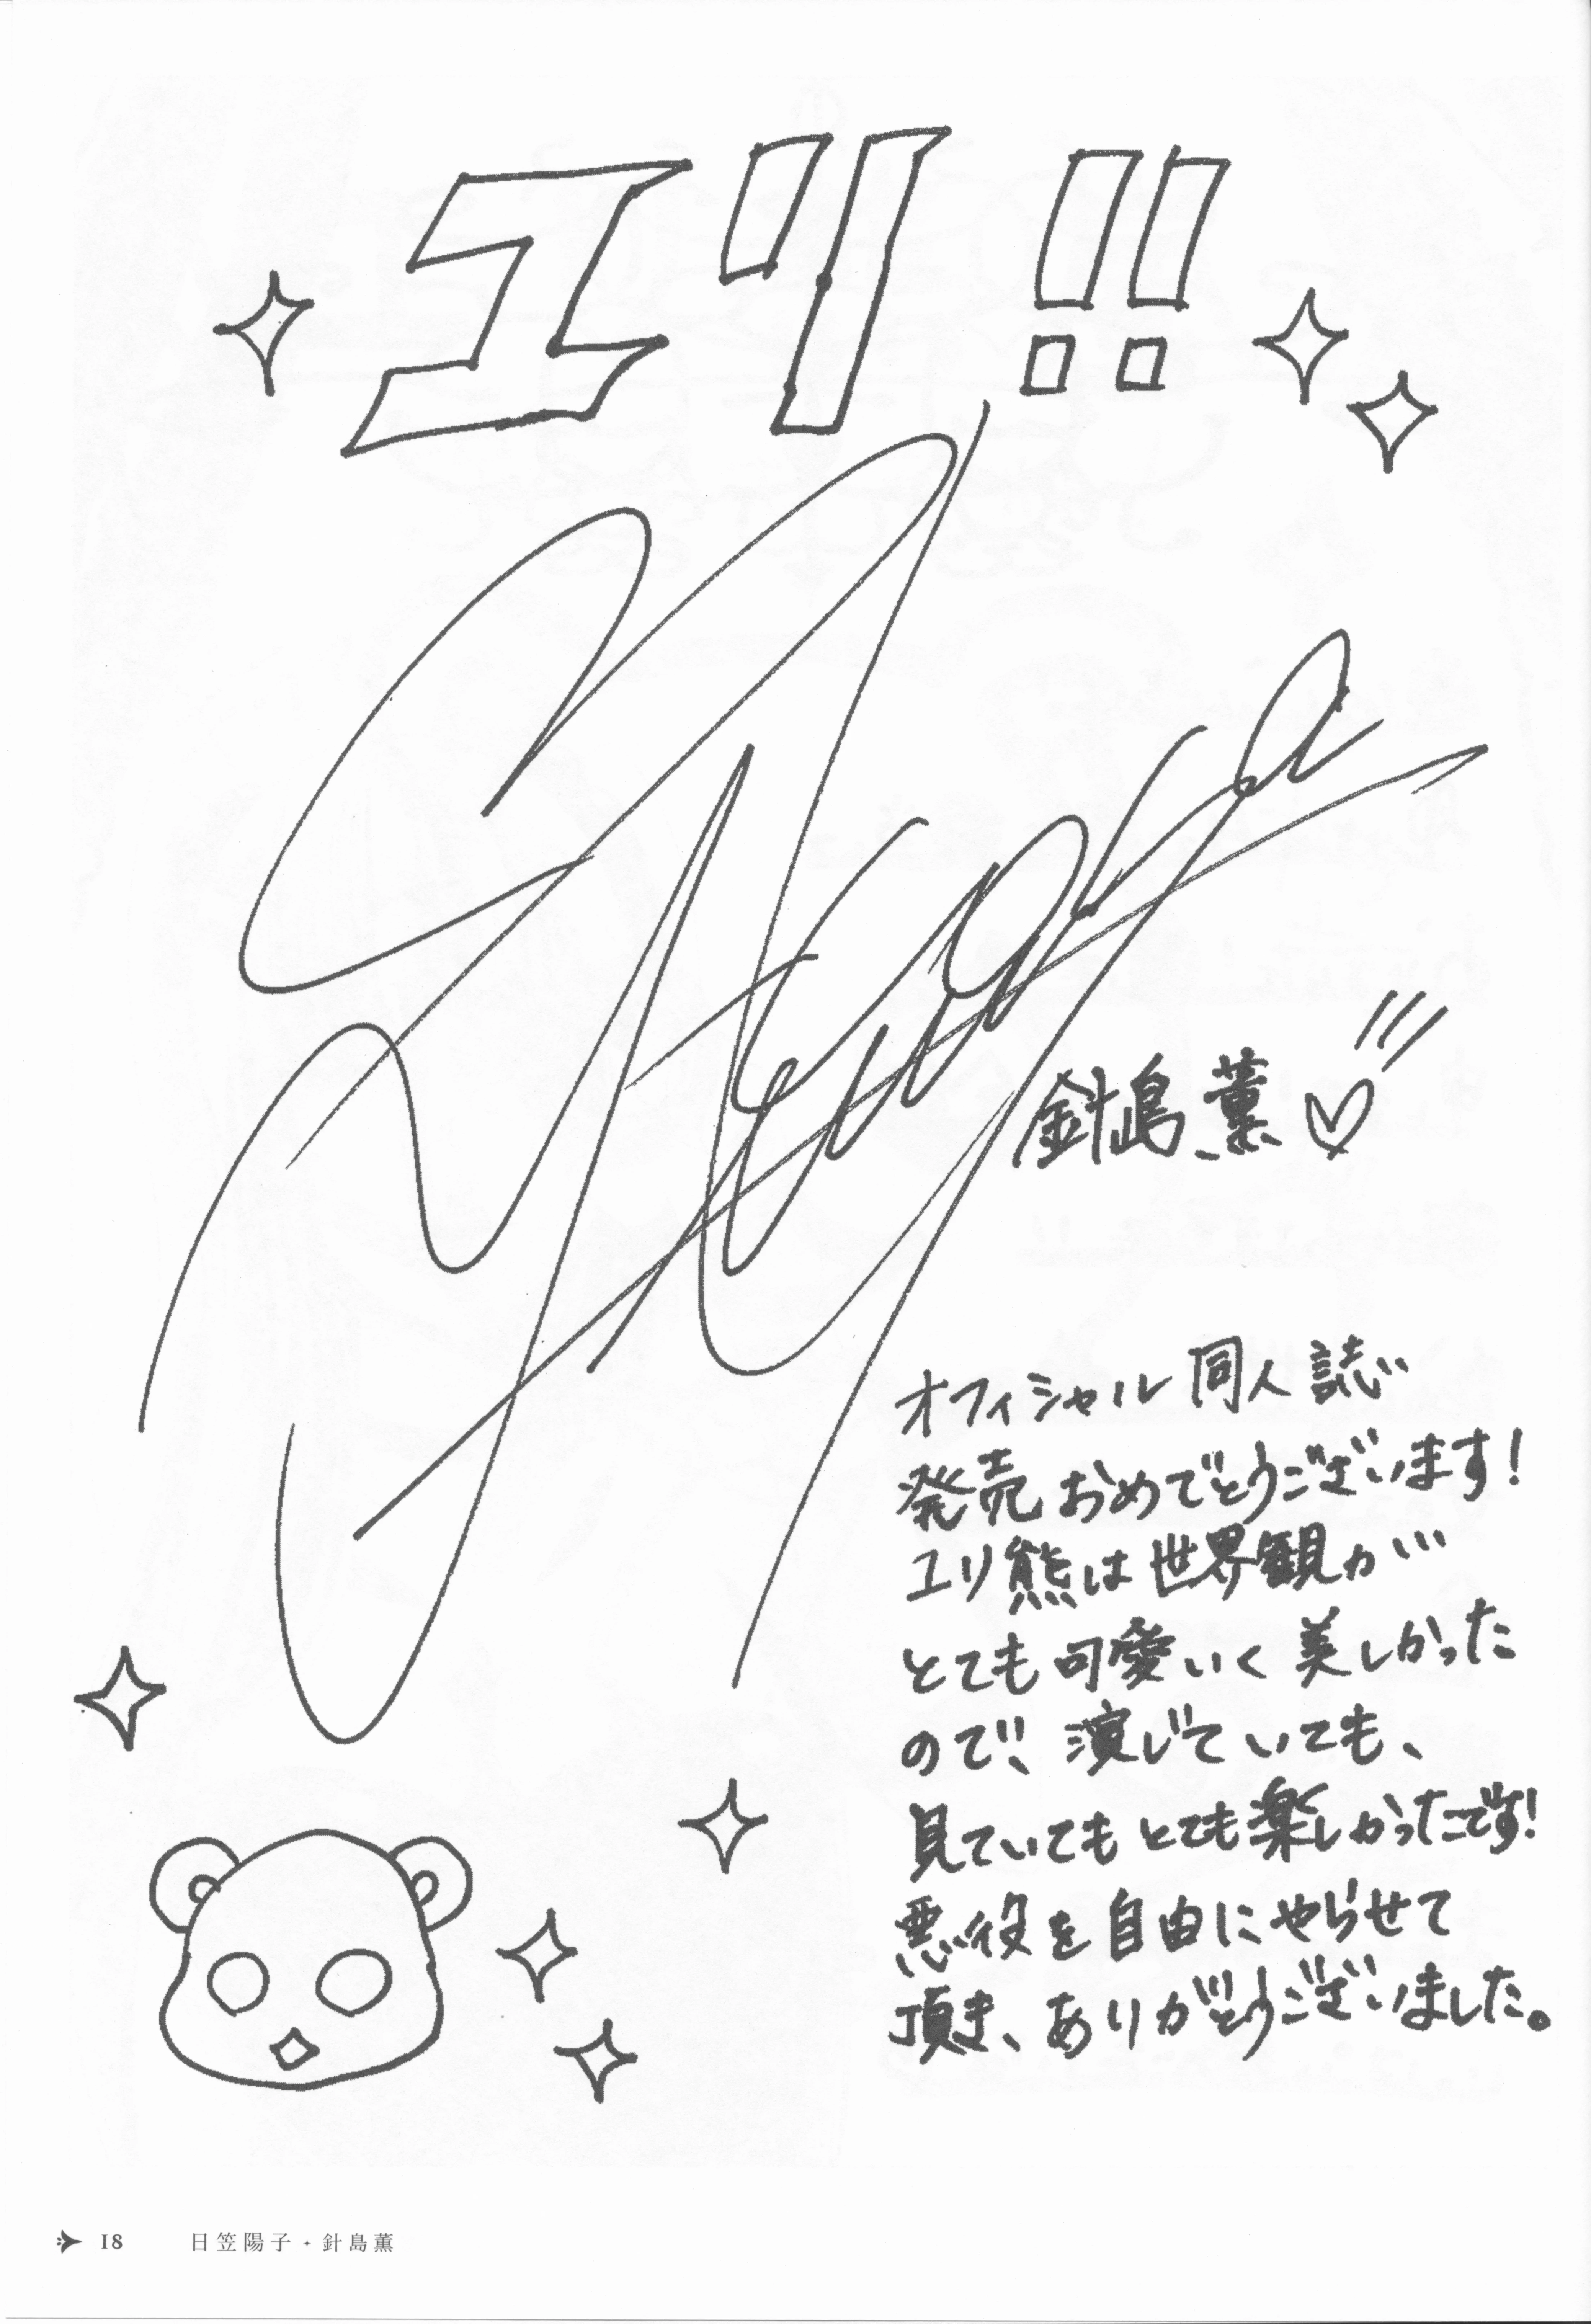 ユリ!!
針島薫♡
オフィシャル同人誌
発売おめでとうございます!
ユリ熊は世界観が
とても可愛いく美しかった
ので、演じていても、
見ていてもとても楽しかったです!
悪役を自由にやらせて
頂き、ありがとうございました。
18 日笠陽子・針島薫